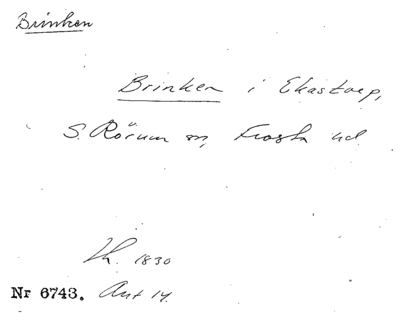 Brinken
Brinken i Ekastorp,
S. Rörum sn, Frosta hd.
Lk. 1830
Nr 6743. Ant 14.